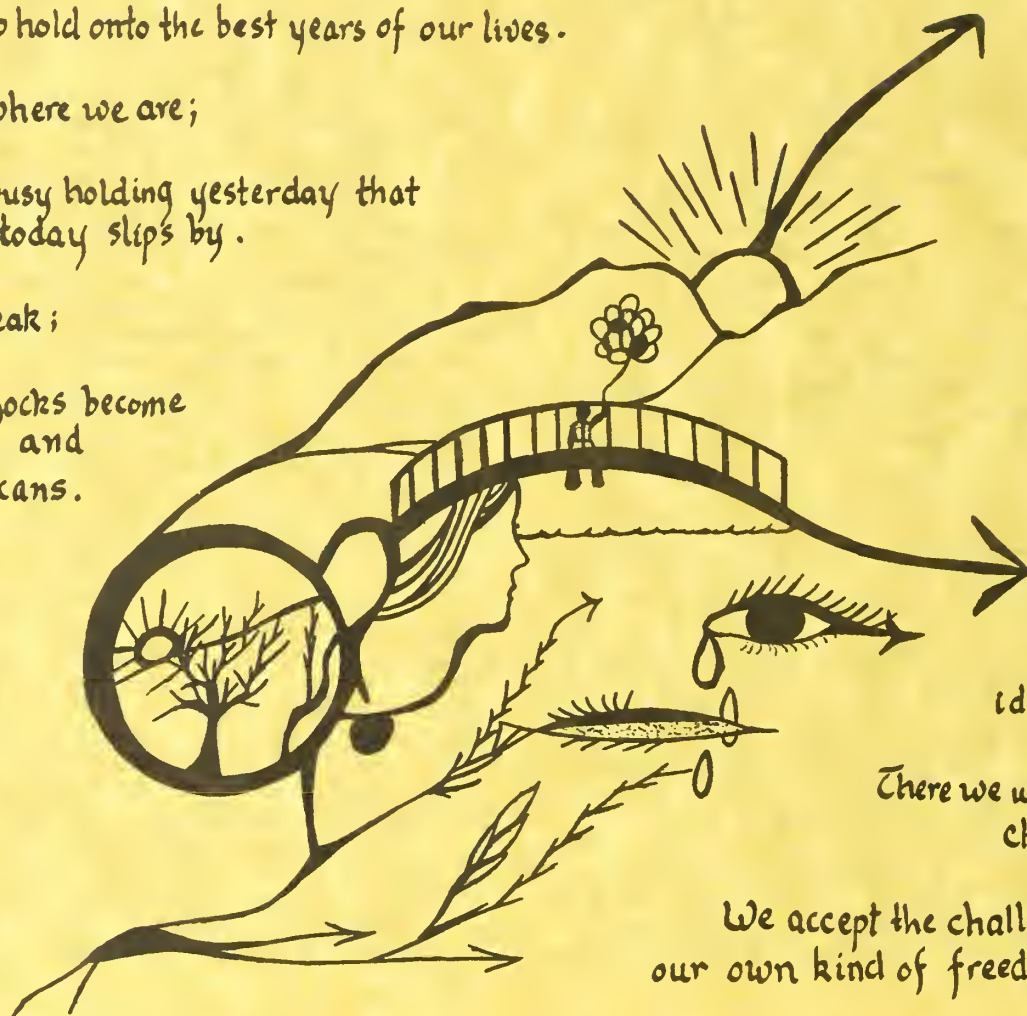 hold onto the best years of our lives.
where we are;
busy holding yesterday that
today slips by.
eak;
ocks become
and
cans.
id
There we w
ch
We accept the chall
our own kind of freed